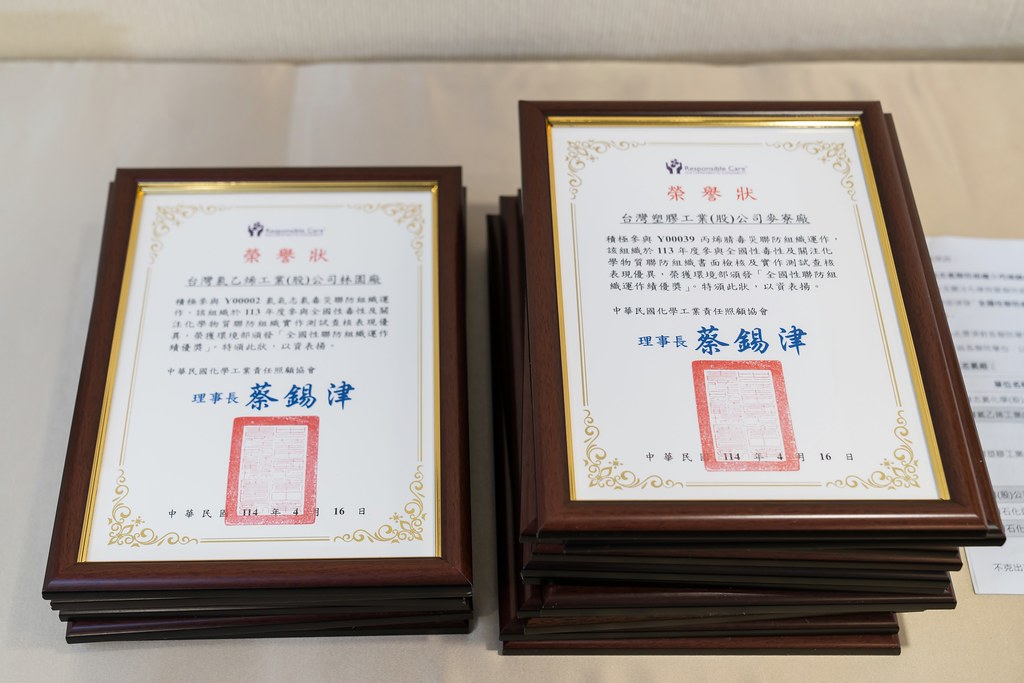 Responsible Care
榮譽狀
台灣氯乙烯工業(股)公司林園廠
積極參與 Y00002 氯氣志氣毒災聯防組織運
作，該組織於 113 年度參與全國性毒性及關
注化學物質聯防組織實作測試查核表現優
異，榮獲環境部頒發「全國性聯防組織運作
績優獎」，特頒此狀，以資表揚。
中華民國化學工業責任照顧協會
理事長 蔡錫津
中華民國 114 年 4 月 16 日
Responsible Care
榮譽狀
台灣塑膠工業(股)公司麥寮廠
積極參與 Y00039 丙烯腈毒災聯防組織運作，
該組織於 113 年度參與全國性毒性及關注化
學物質聯防組織書面檢核及實作測試查核
表現優異，榮獲環境部頒發「全國性聯防組
織運作績優獎」。特頒此狀，以資表揚。
中華民國化學工業責任照顧協會
理事長 蔡錫津
中華民國 114 年 4 月 16 日
單位名
乙烯工業
(股)公
石化
不克出